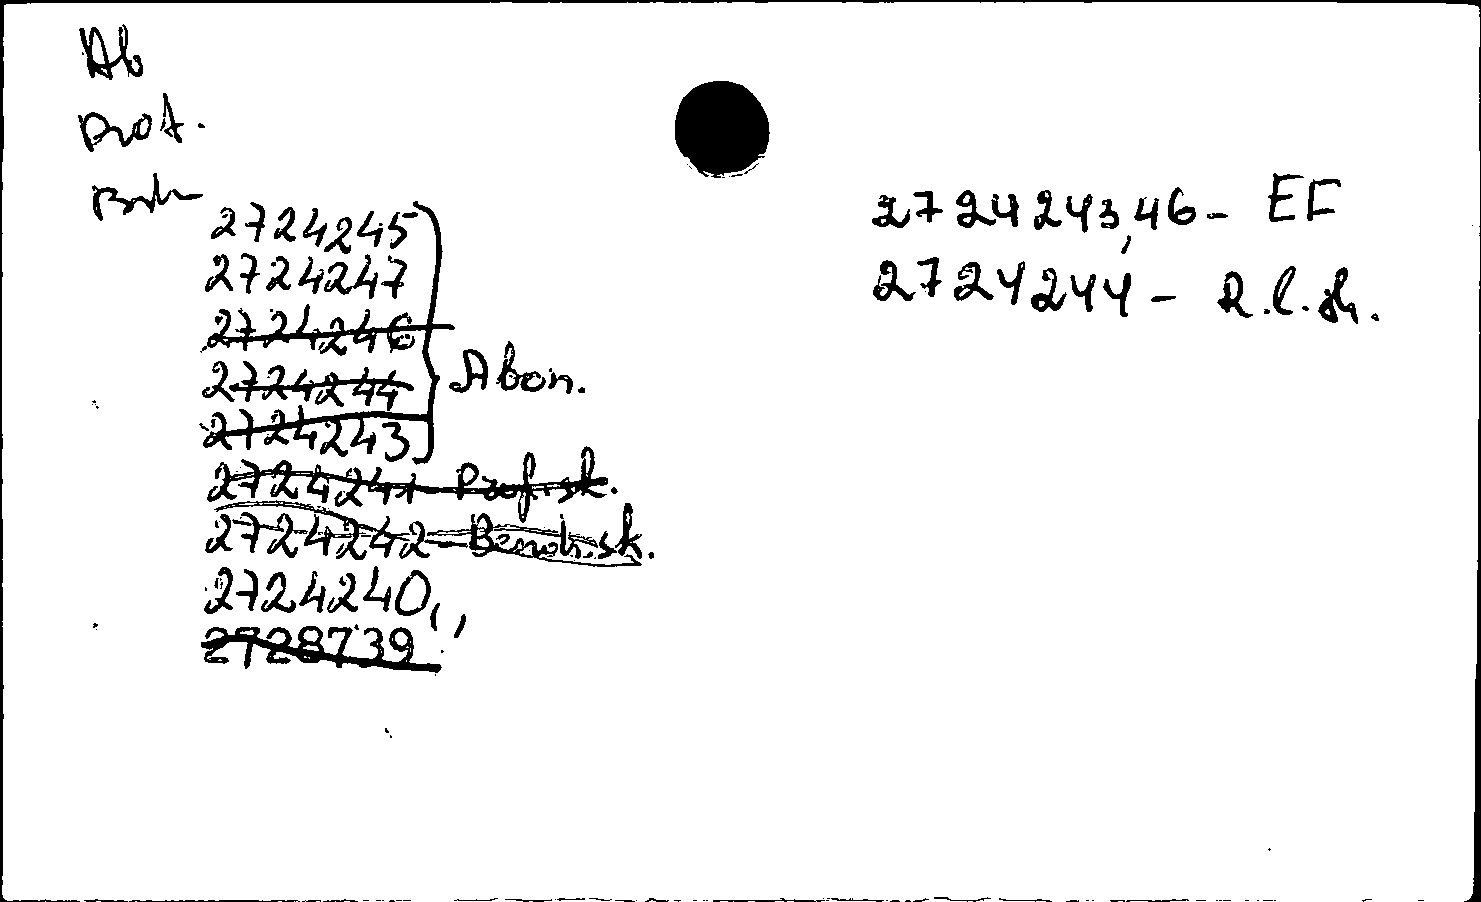 Ab
Prof.
2724245
2724247
2724246
2724244 Abon.
2724243
2724241 - Prof. sk.
2724242 - Bendr. sk.
2724240
2728739
2724243,46 - EF
2724244 - R.l.sk.